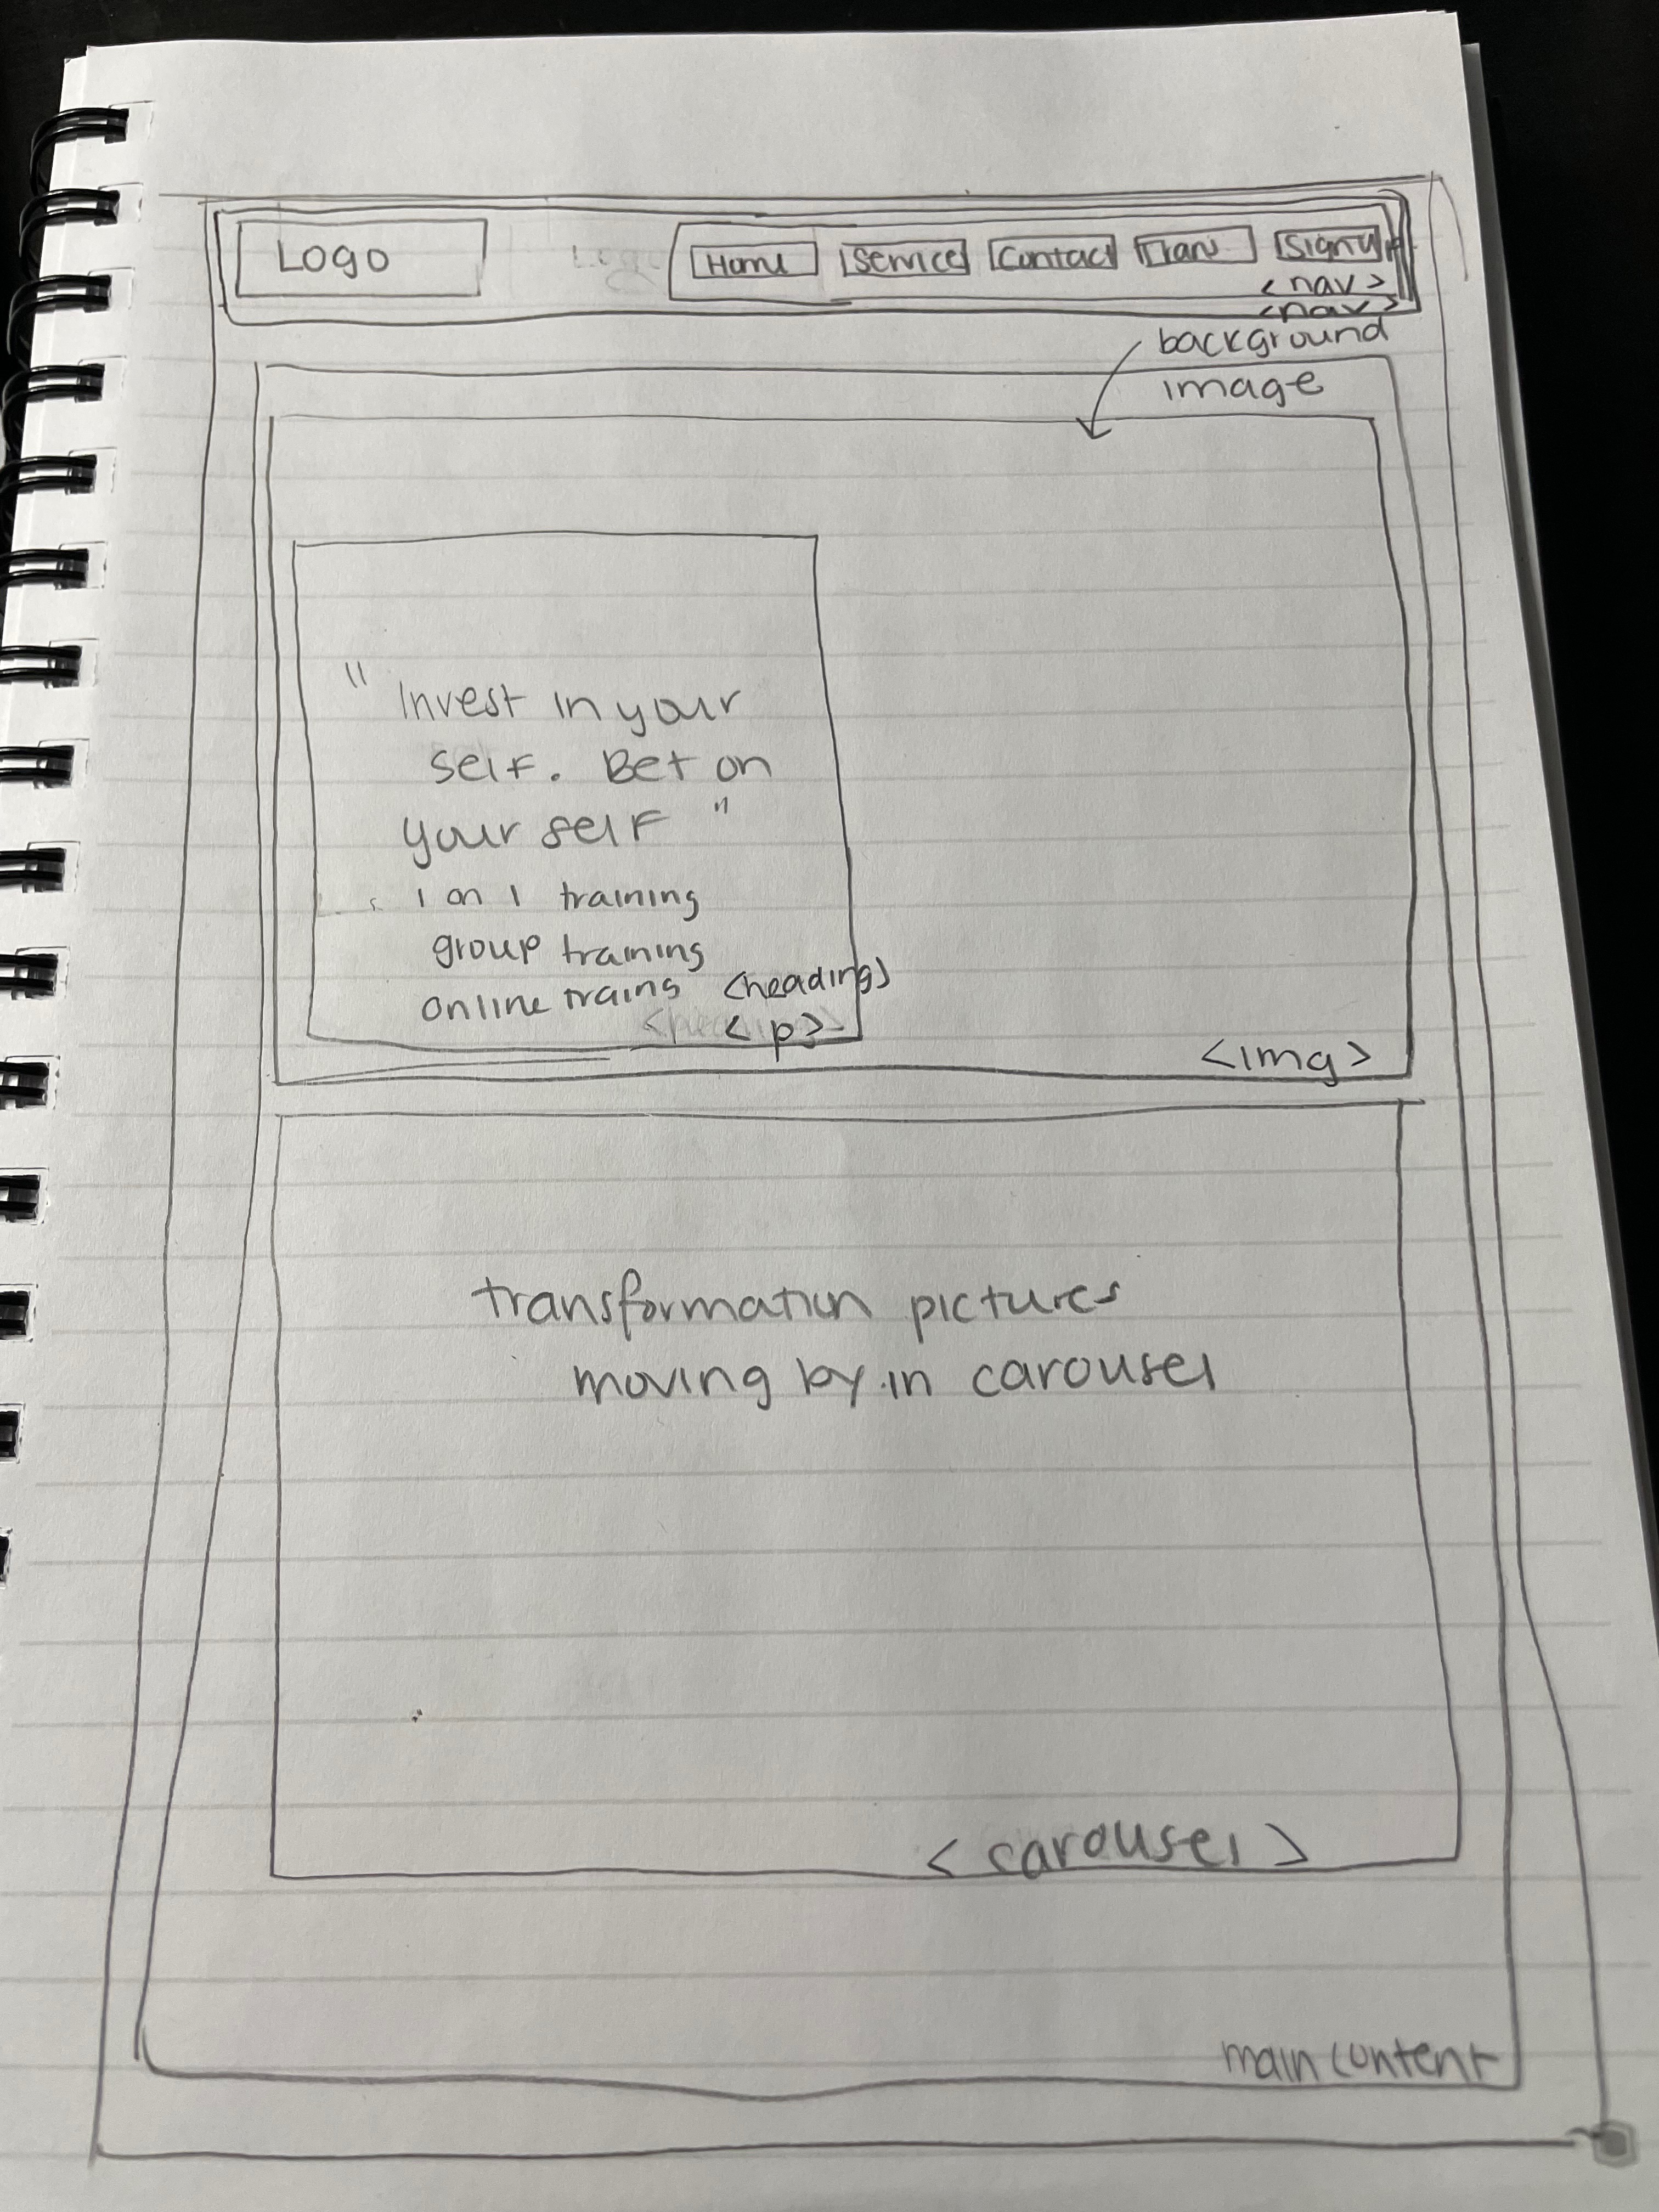 Logo
Home Service Contact Trans Sign up
<nav>
<nav>
background
image
" Invest in your
self. Bet on
your self "
1 on 1 training
group training
online trains <heading>
<p>
<img>
transformation pictures
moving by in carousel
<carousel>
main content